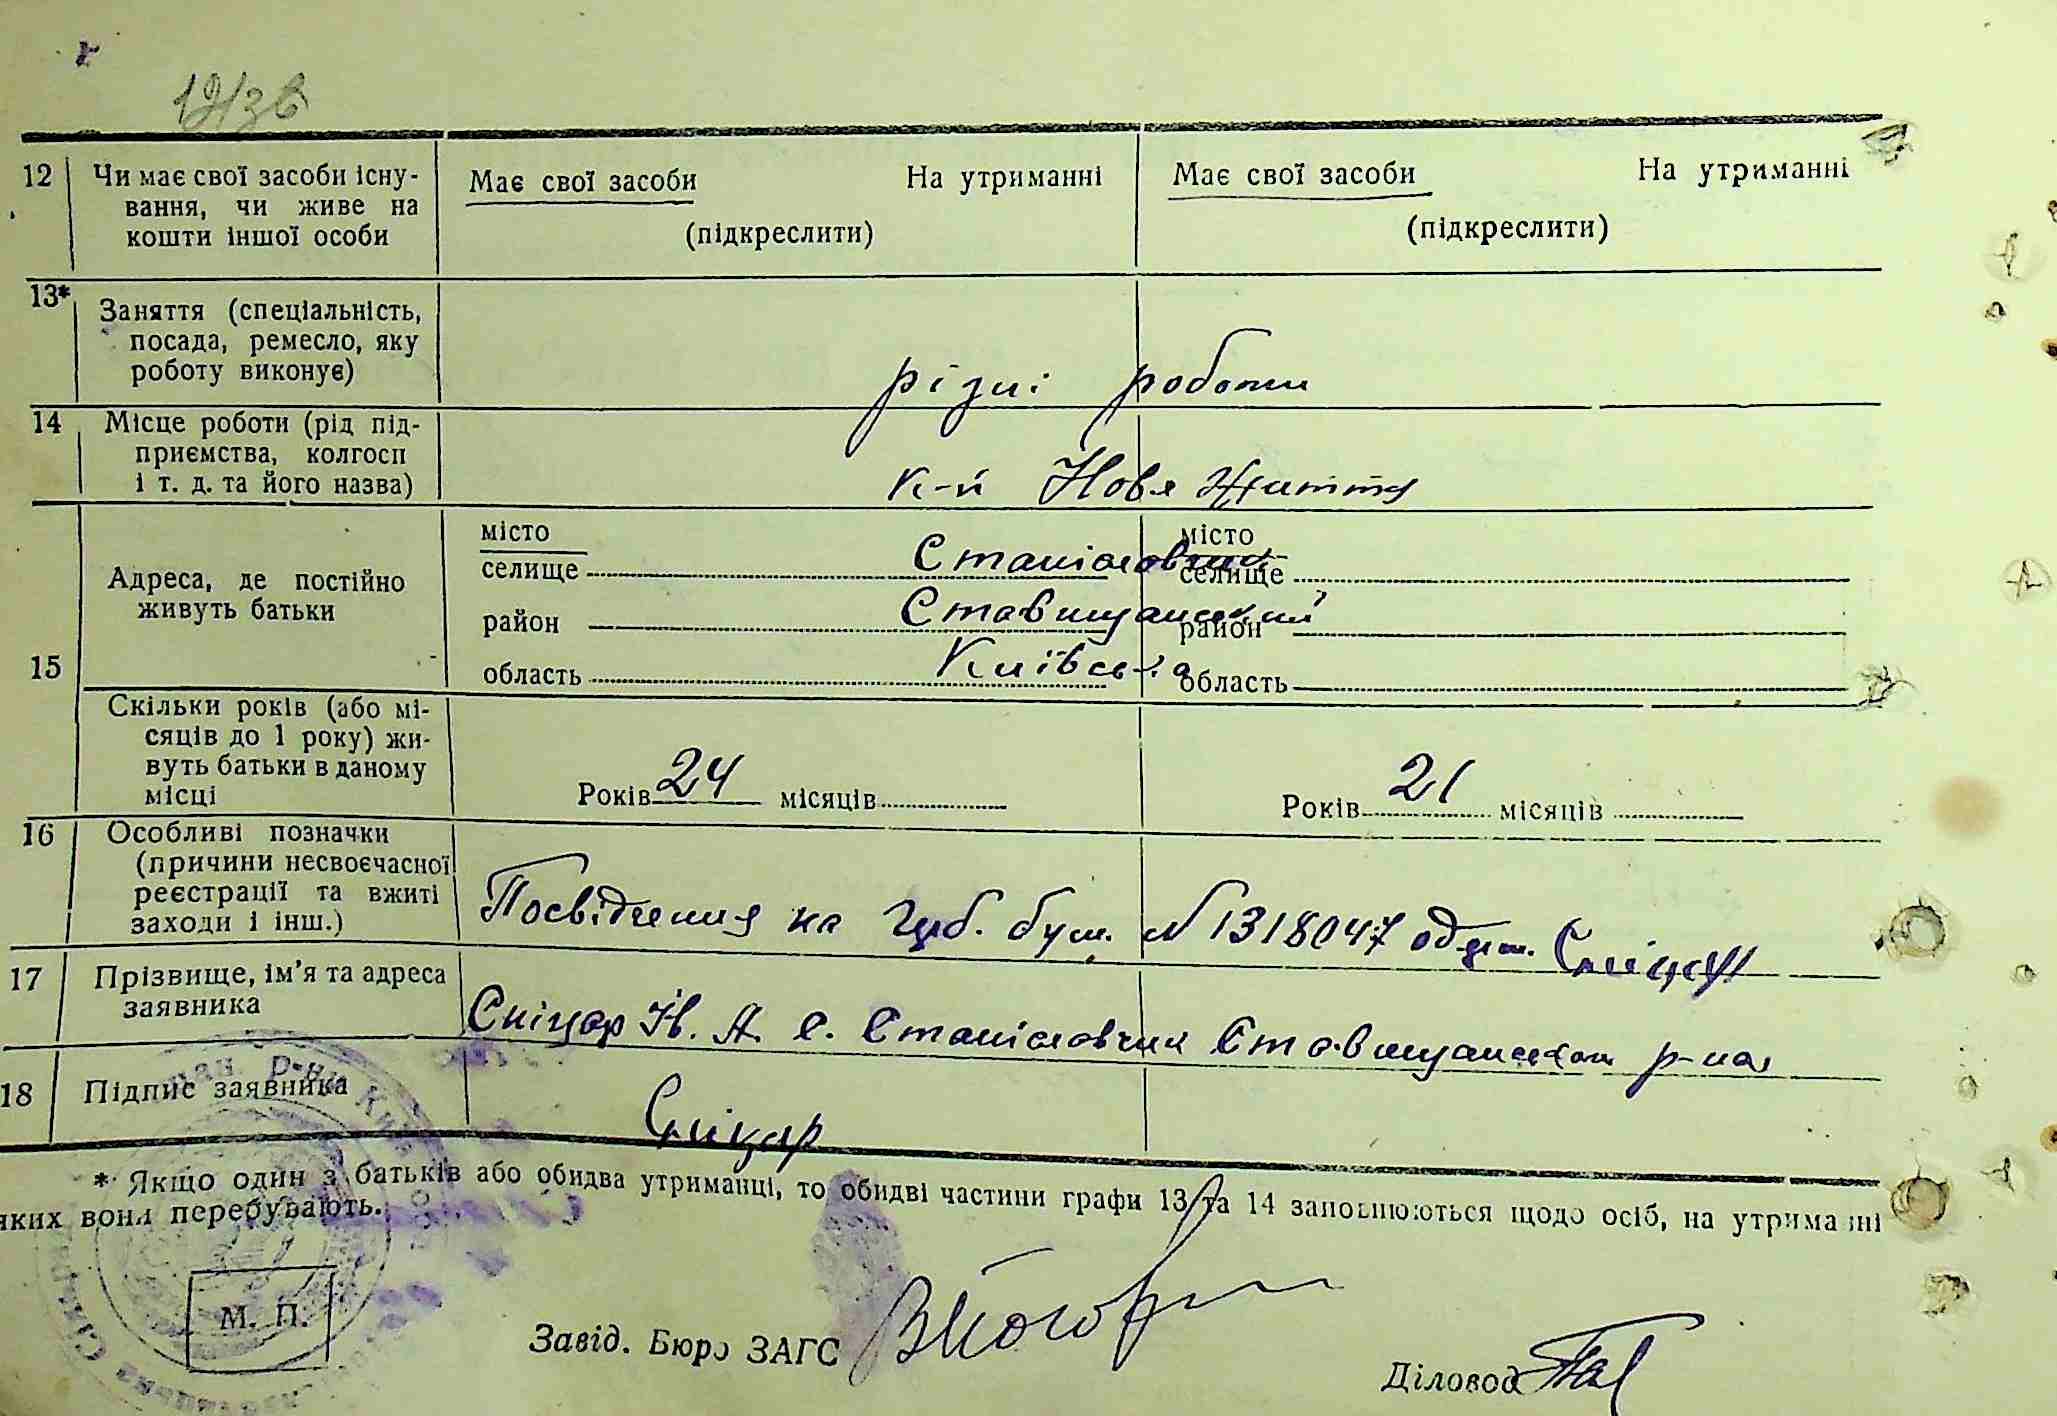 12/38
12 Чи має свої засоби існу-
вання, чи живе на
кошти іншої особи
Має свої засоби На утриманні
(підкреслити)
Має свої засоби На утриманні
(підкреслити)
13* Заняття (спеціальність,
посада, ремесло, яку
роботу виконує)
різні роботи
14 Місце роботи (рід під-
приємства, колгосп
і т. д. та його назва)
к-п Нове Життя
15 Адреса, де постійно
живуть батьки
місто
селище Станіславчик
район Ставищанський
область Київська
місто
селище
район
область
Скільки років (або мі-
сяців до 1 року) жи-
вуть батьки в даному
місці
Років 24 місяців
Років 21 місяців
16 Особливі позначки
(причини несвоєчасної
реєстрації та вжиті
заходи і інш.)
Посвідчення на N 1318047 Сніцар
17 Прізвище, ім'я та адреса
заявника
Сніцар Ів. А. с. Станіславчик Ставищанськ р-на
18 Підпис заявника
Сніцар
* Якщо один з батьків або обидва утриманці, то обидві частини графи 13 та 14 заповнюються щодо осіб, на утриманні
яких вони перебувають.
М. П.
Завід. Бюро ЗАГС
Діловод